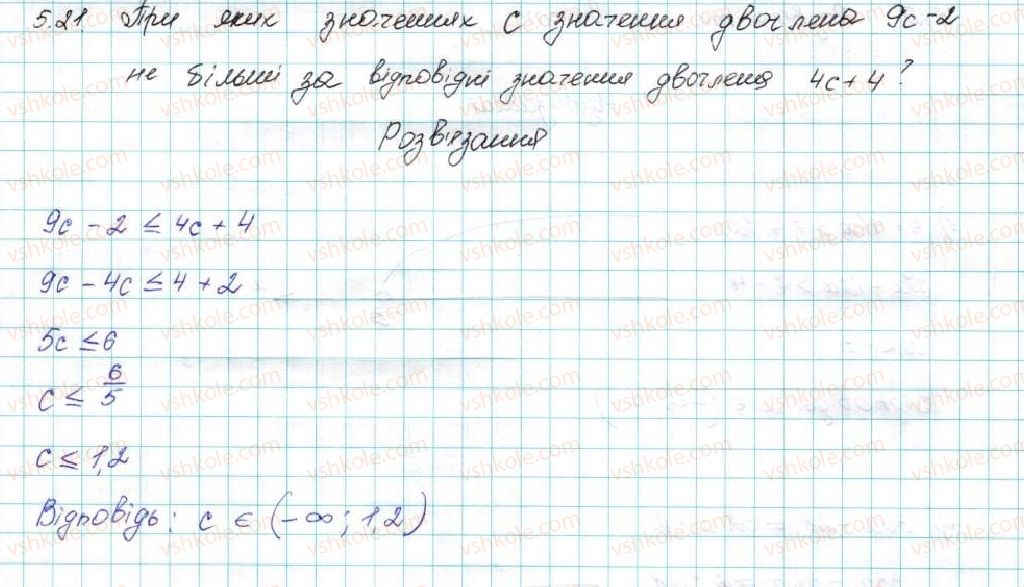 5.21. При яких значеннях c значення двочлена 9c-2
не більші за відповідні значення двочлена 4c+4?
Розв'язання
9c - 2 ≤ 4c + 4
9c - 4c ≤ 4 + 2
5c ≤ 6
c ≤ 6/5
c ≤ 1,2
Відповідь: c ∈ (-∞; 1,2)